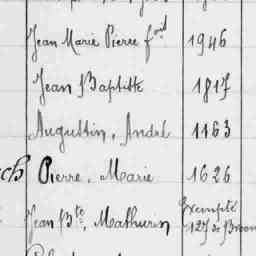 Jean Marie Pierre fois 1946
Jean Baptiste 1817
Augustin, André 1163
ch Pierre, Marie 1626
Jean Bte, Mathurin Exempté
127 de